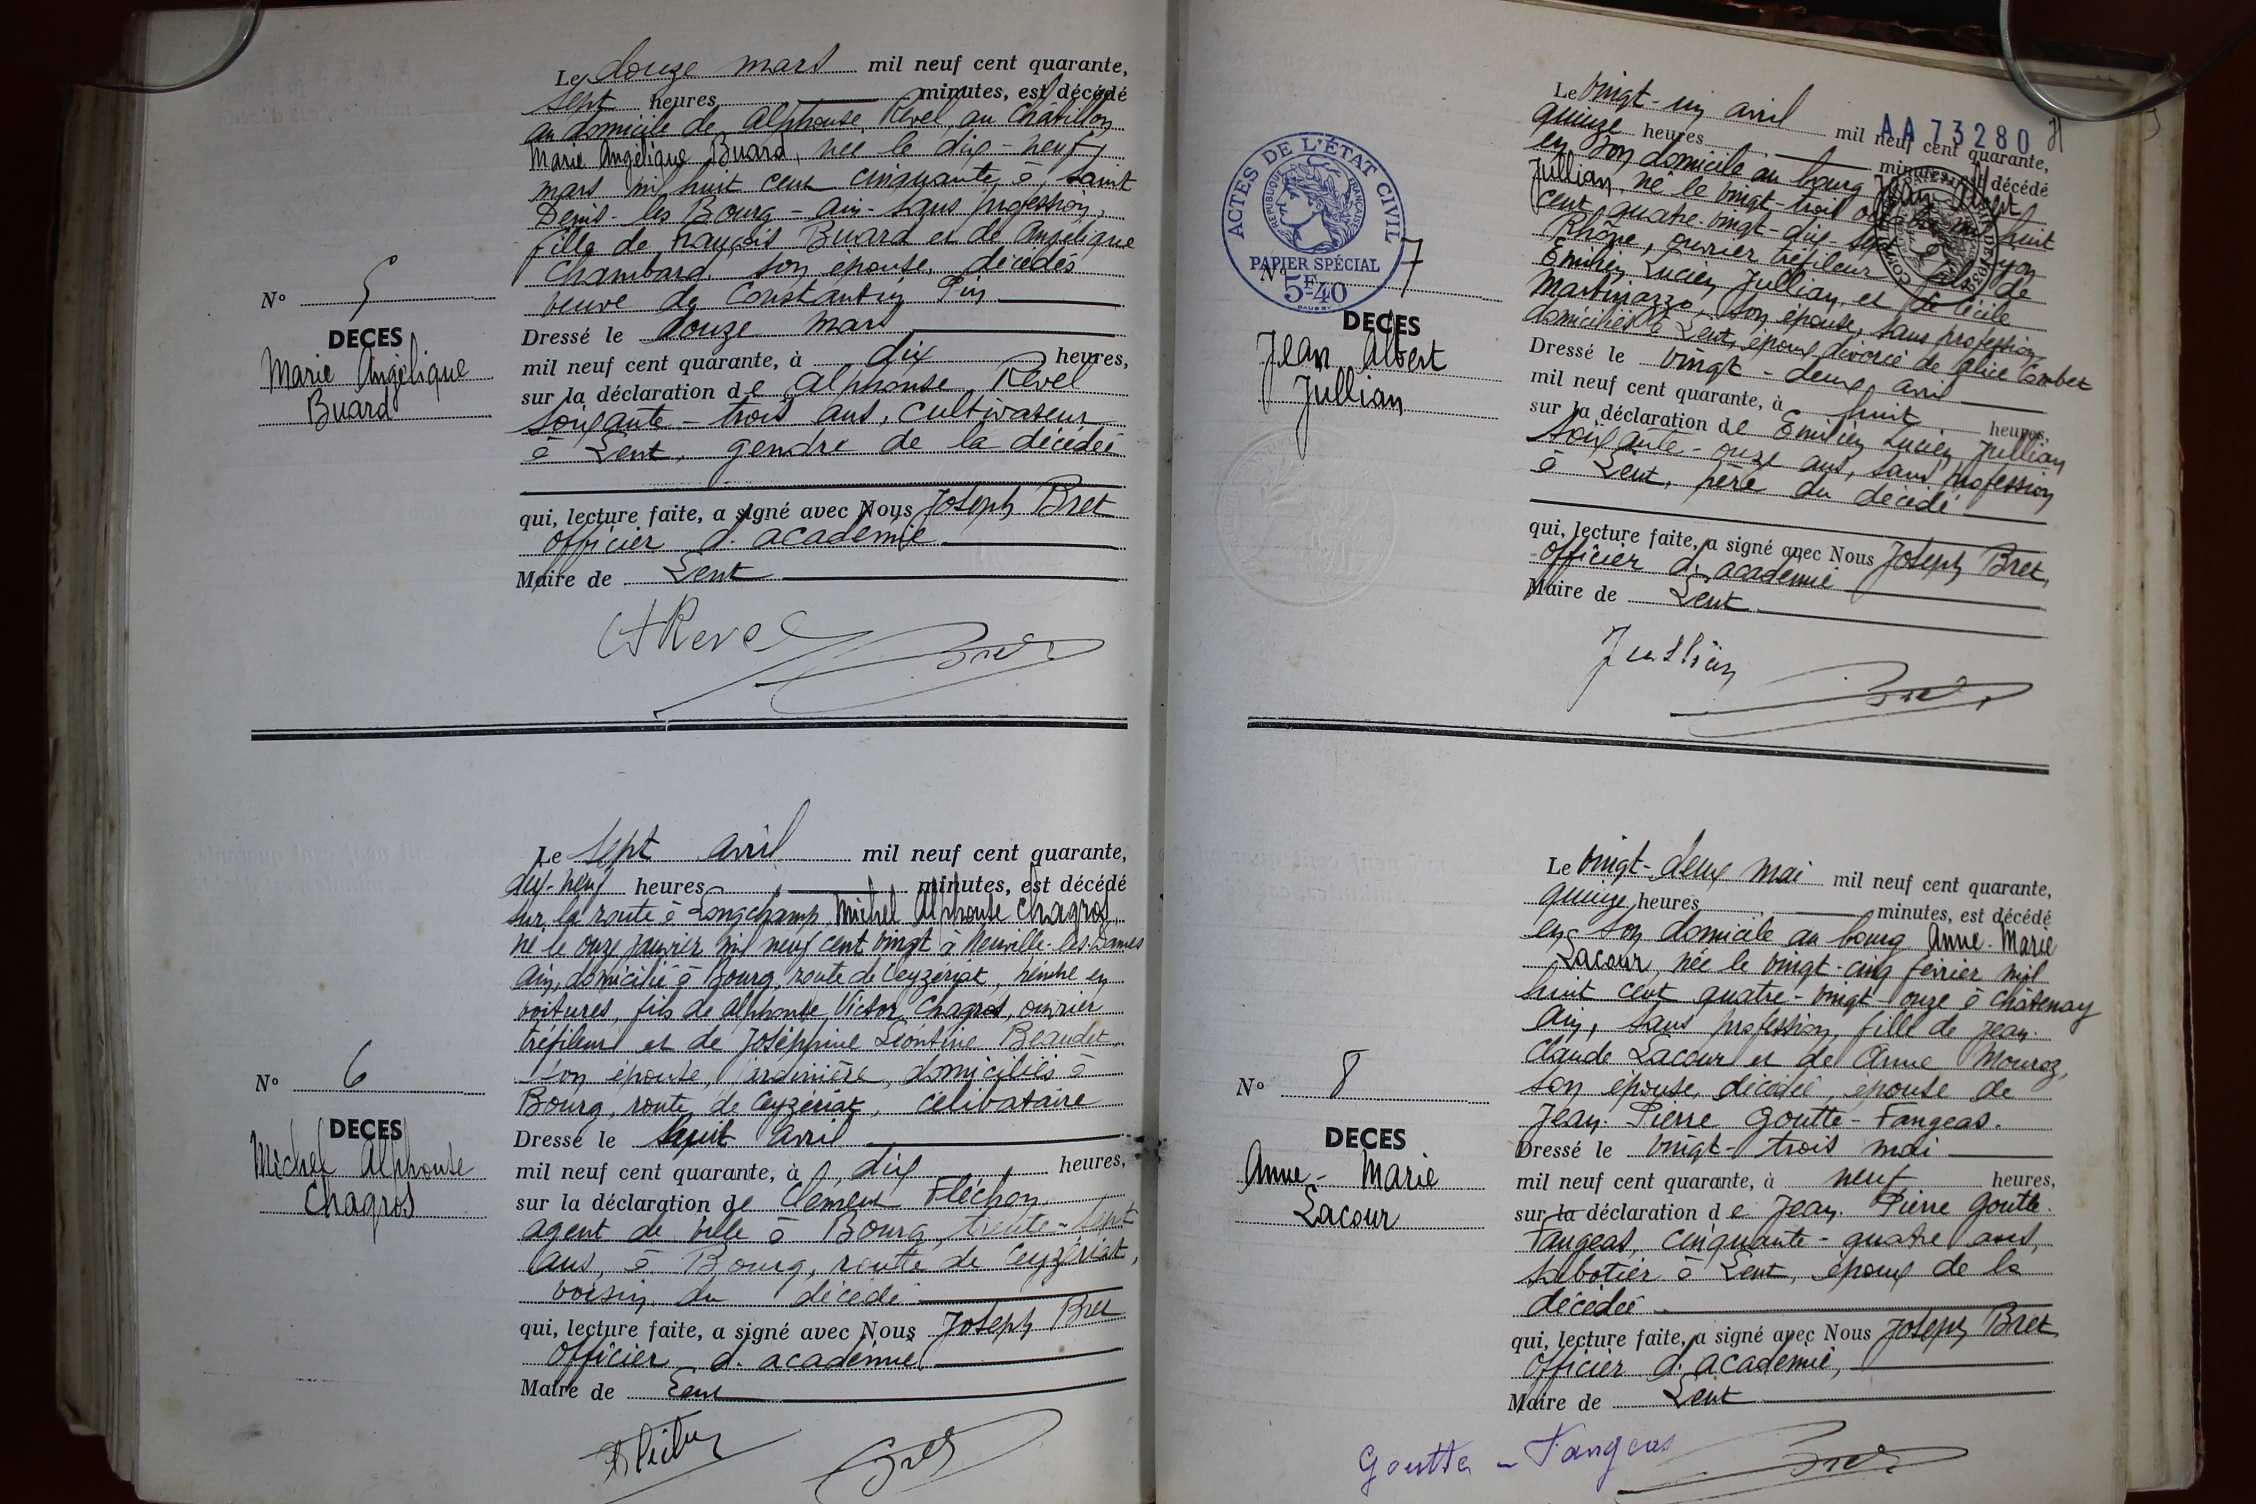 Le douze mars mil neuf cent quarante,
sept heures minutes, est décédé
au domicile de Alphonse Revel au Châtillon
Marie Angélique Buard, née le dix-neuf
mars mil huit cent cinquante, à Saint
Denis-les Bourg-Ain-sans profession,
fille de François Buard et de Angélique
Chambard son épouse, décédés
veuve de Constantin Pin
N° 5
DECES
Marie Angélique
Buard
Dressé le douze mars
mil neuf cent quarante, à dix heures,
sur la déclaration de Alphonse Revel
soixante-trois ans, cultivateur
à Lent, gendre de la décédée
qui, lecture faite, a signé avec Nous Joseph Bret
officier d'académie
Maire de Lent
A Revel
Bret
Le sept avril mil neuf cent quarante,
dix-neuf heures minutes, est décédé
sur la route à Longchamp Michel Alphonse Chagros
né le onze janvier mil neuf cent vingt à Neuville-les-Dames
Ain, domicilié à Bourg, route de Ceyzériat, peintre en
voitures, fils de Alphonse Victor Chagros, ouvrier
tréfileur et de Joséphine Léontine Beaudet
son épouse, domiciliés à
Bourg, route de Ceyzériat, célibataire
N° 6
DECES
Michel Alphonse
Chagros
Dressé le huit avril
mil neuf cent quarante, à dix heures,
sur la déclaration de Clément Fléchon
agent de ville à Bourg, trente-sept
ans, à Bourg, route de Ceyzériat,
voisin du décédé
qui, lecture faite, a signé avec Nous Joseph Bret
officier d'académie
Maire de Lent
Bret
AA73280
Le vingt-un avril mil neuf cent quarante,
quinze heures minutes, est décédé
en son domicile au bourg Jean Albert
Jullian, né le vingt-trois octobre mil huit
cent quatre-vingt-dix-sept à Lyon
Rhône, ouvrier tréfileur fils de
Emilien Lucien Jullian et de Cécile
Martinazzo, son épouse, sans profession
domiciliés à Lent, époux divorcé de Alice Combet
ACTES DE L'ÉTAT CIVIL
RÉPUBLIQUE FRANÇAISE
PAPIER SPÉCIAL
5F40
N° 7
DECES
Jean Albert
Jullian
Dressé le vingt-deux avril
mil neuf cent quarante, à huit heures,
sur la déclaration de Emilien Lucien Jullian
soixante-onze ans, sans profession
à Lent, père du décédé
qui, lecture faite, a signé avec Nous Joseph Bret,
officier d'académie
Maire de Lent
Jullian
Bret
Le vingt-deux mai mil neuf cent quarante,
quinze heures minutes, est décédé
en son domicile au bourg Anne-Marie
Lacour, née le vingt-cinq février mil
huit cent quatre-vingt-onze à Châtenay
Ain, sans profession, fille de Jean-
Claude Lacour et de Anne Mouroz,
son épouse, décédée, épouse de
Jean-Pierre Goutte-Fangeas.
N° 8
DECES
Anne-Marie
Lacour
Dressé le vingt-trois mai
mil neuf cent quarante, à neuf heures,
sur la déclaration de Jean-Pierre Goutte-
Fangeas, cinquante-quatre ans,
sabotier à Lent, époux de la
décédée
qui, lecture faite, a signé avec Nous Joseph Bret
officier d'académie,
Maire de Lent
Goutte-Fangeas
Bret